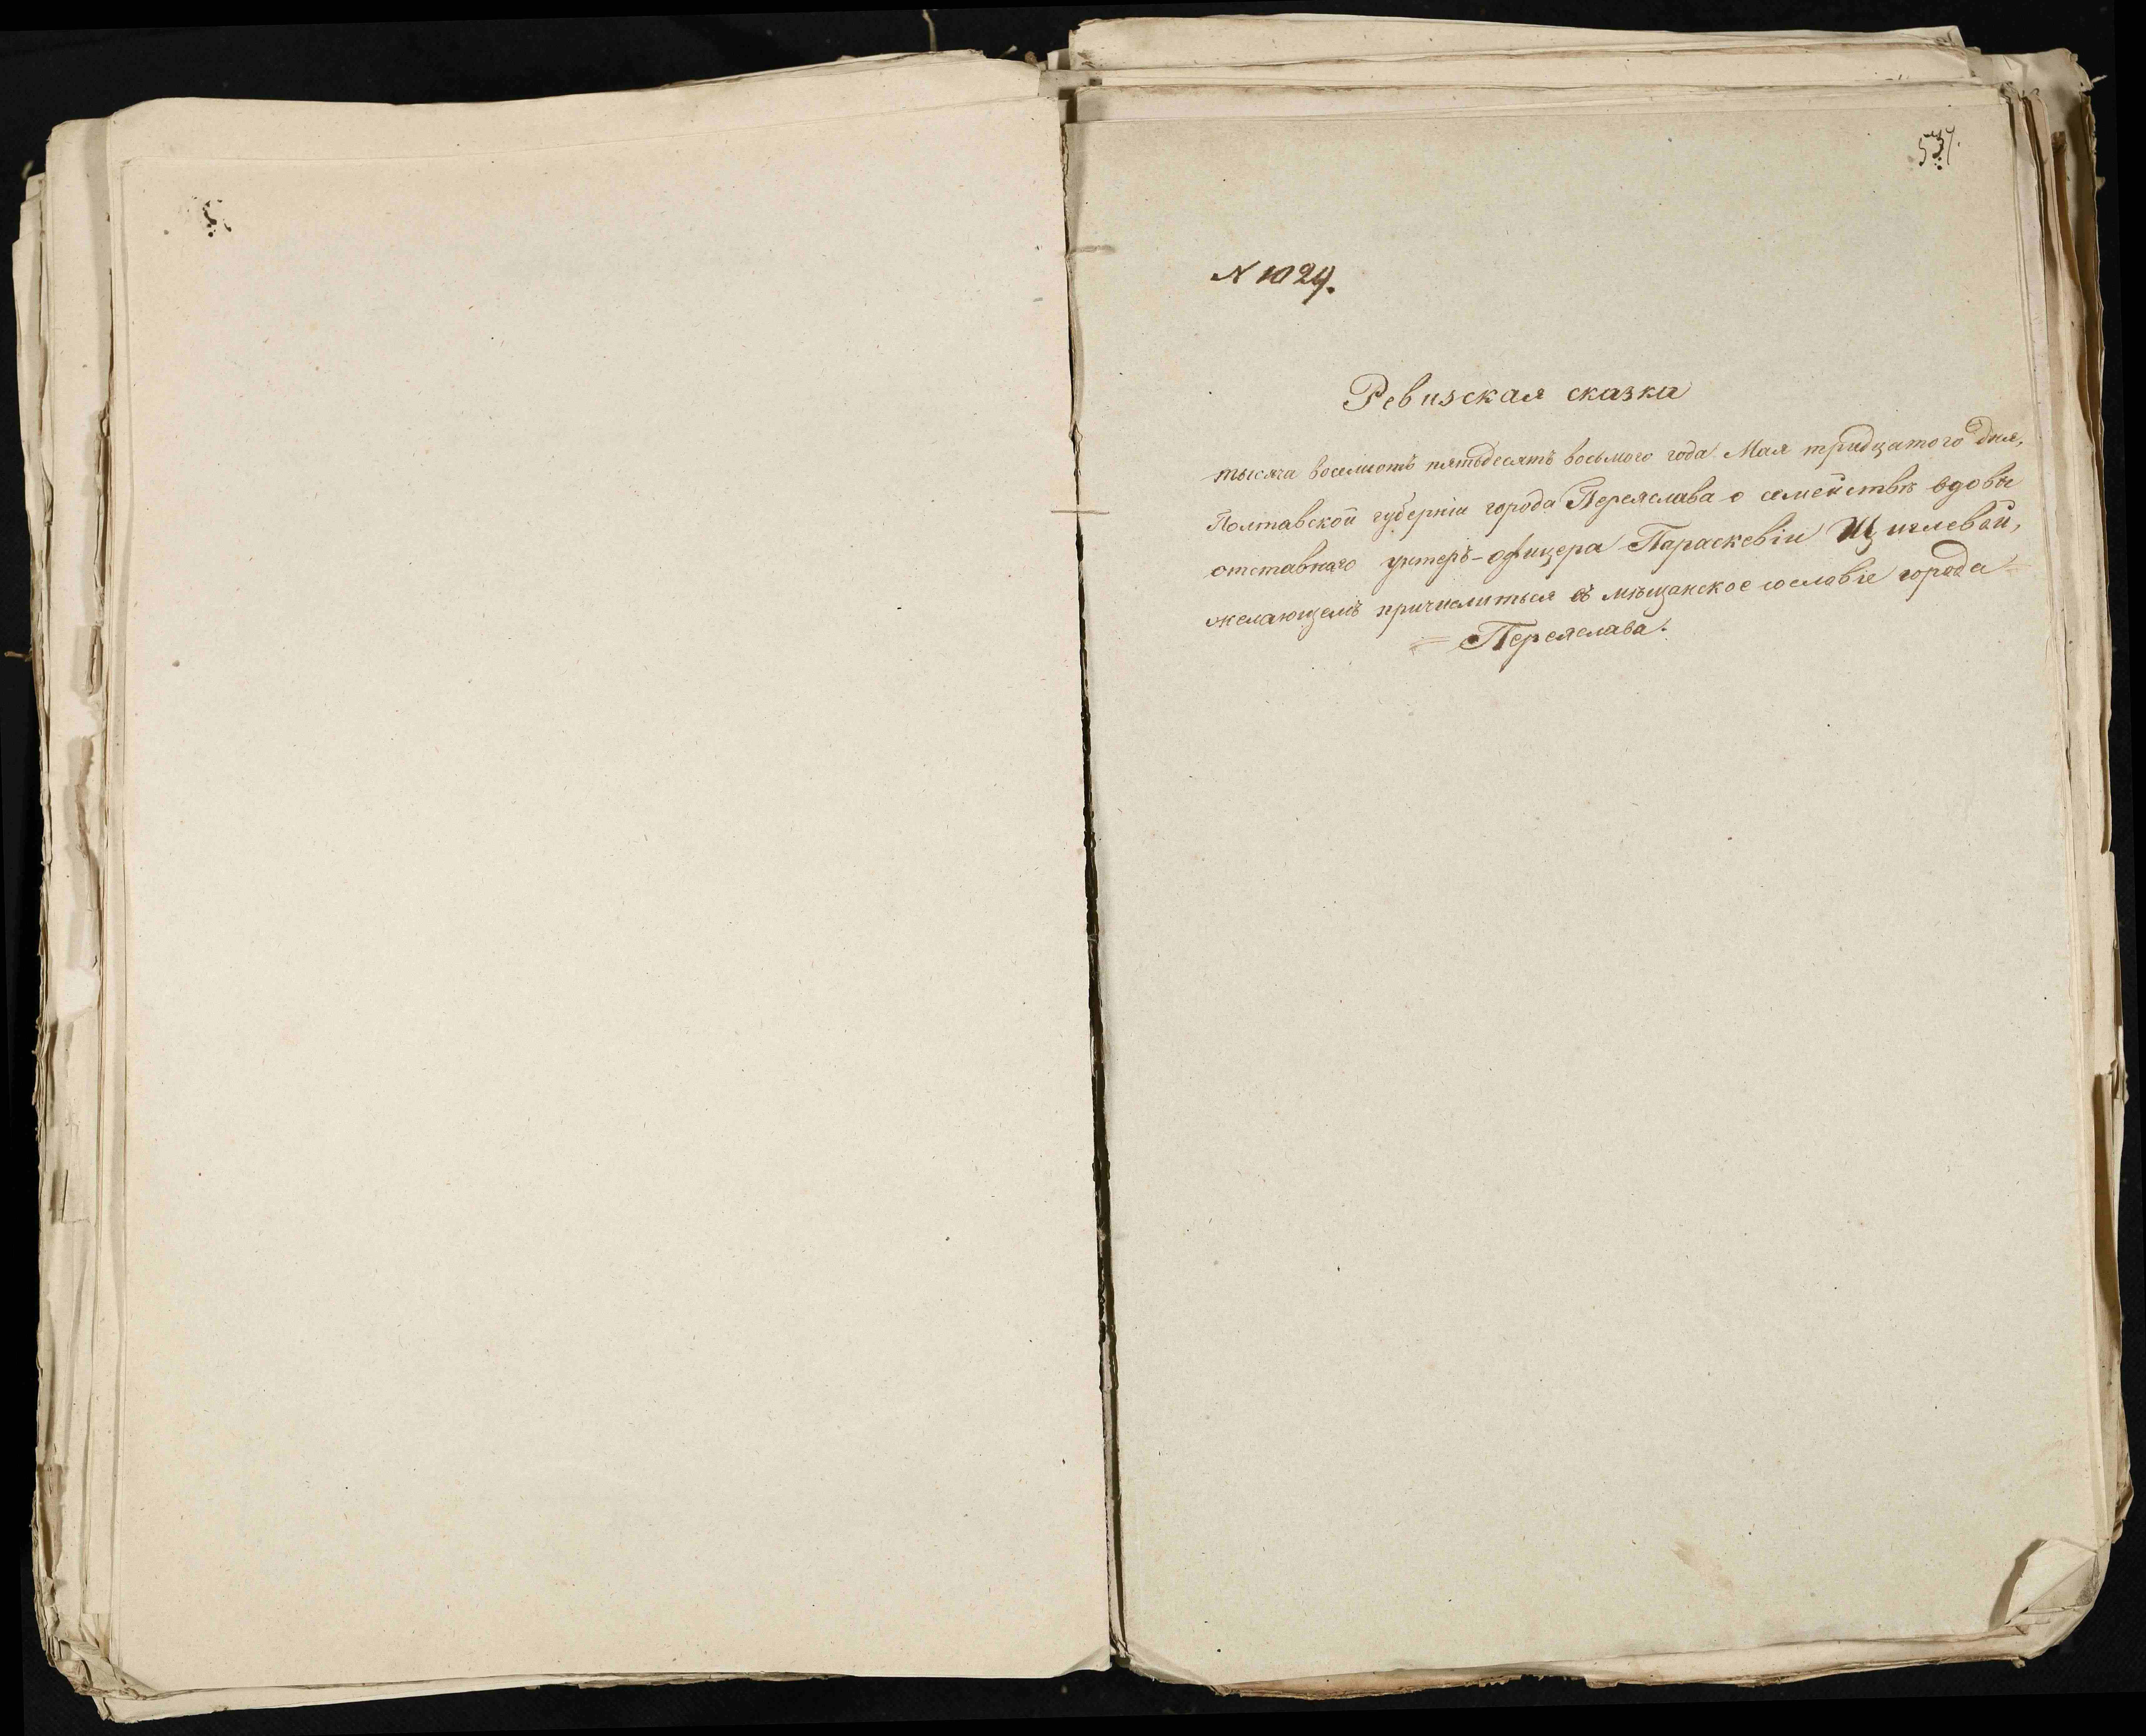 537.
N 1029.
Ревизская сказка
тысяча восемсотъ пятьдесятъ восьмого года Мая тридцатого дня,
Полтавской губерніи города Переяслава о семействѣ вдовы
отставнаго унтеръ-офицера Параскевіи Щиглевой,
желающемъ причислиться въ мѣщанское сословіе города
Переяслава.